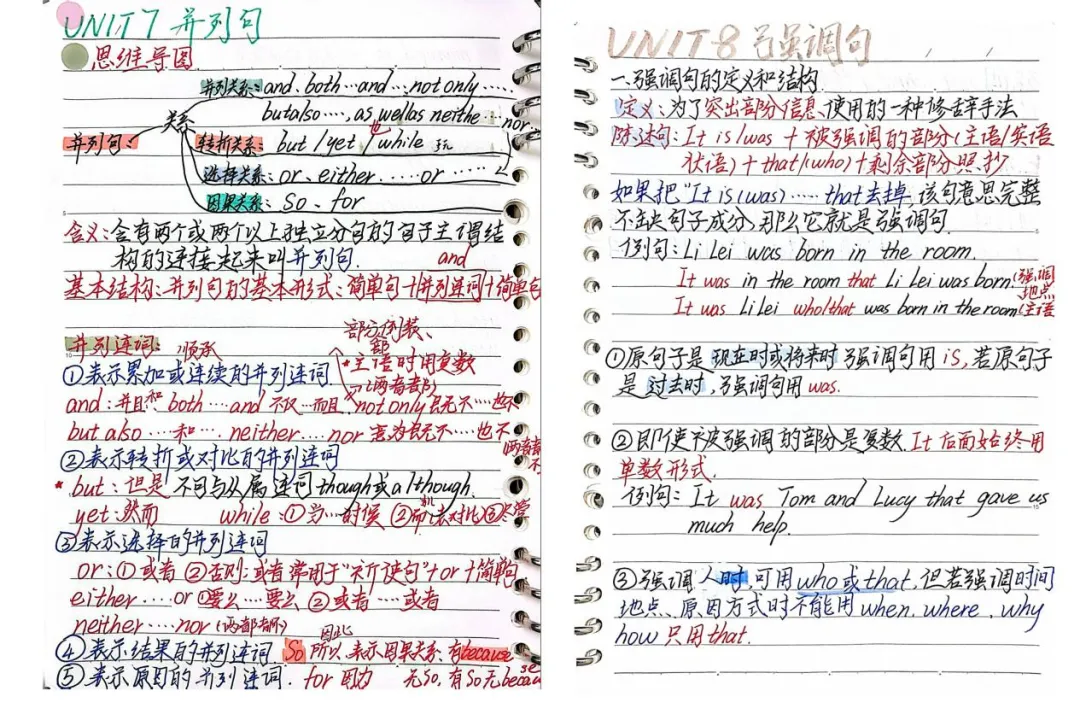 UNIT7 并列句
思维导图
并列关系:and. both…and…, not only……
but also…., as well as neithe….nor
并列句: 关系 转折关系: but / yet / while
也
选择关系: or. either……or……
因果关系: So、for
含义:含有两个或两个以上独立分句的句子主谓结
构的连接起来叫并列句.
and
基本结构:并列句的基本形式:简单句+并列连词+简单句
部分倒装、
并列连词: 顺承
主语时用复数
①表示累加或连续的并列连词.
(两者都)
and:并且和 both…and 不仅…而且 not only 既不…也不
but also …和…. neither….nor 意为既不…也不
②表示转折或对比的并列连词
*but:但是 不可与从属连词though或although.
yet:然而 while:①当…时候 ②而(表对比)③尽管
③表示选择的并列连词
or:①或者 ②否则:或者常用于"祈使句"+or+简单句
either….or ①要么…要么 ②或者…或者
neither…nor(两都不)
因此
④表示结果的并列连词 So 所以 表示因果关系,有because
⑤表示原因的并列连词. for 因为 无So,有So无because
UNIT8 强调句
一.强调句的定义和结构.
定义:为了突出部分信息、使用的一种修辞手法
陈述句:It is/was+被强调的部分(主语/宾语
状语)+that/(who)+剩余部分照抄
如果把"It is(was)……that去掉,该句意思完整
不缺句子成分,那么它就是强调句.
例句:Li Lei was born in the room.
It was in the room that Li Lei was born.(强调
地点
It was Li Lei who/that was born in the room(主语
①原句子是现在时或将来时强调句用is,若原句子
是过去时,强调句用was.
②即使被强调的部分是复数.It后面始终用
单数形式.
例句:It was Tom and Lucy that gave us
much help.
③强调人时,可用who或that,但若强调时间
地点、原因方式时不能用when,where,why
how只用that.